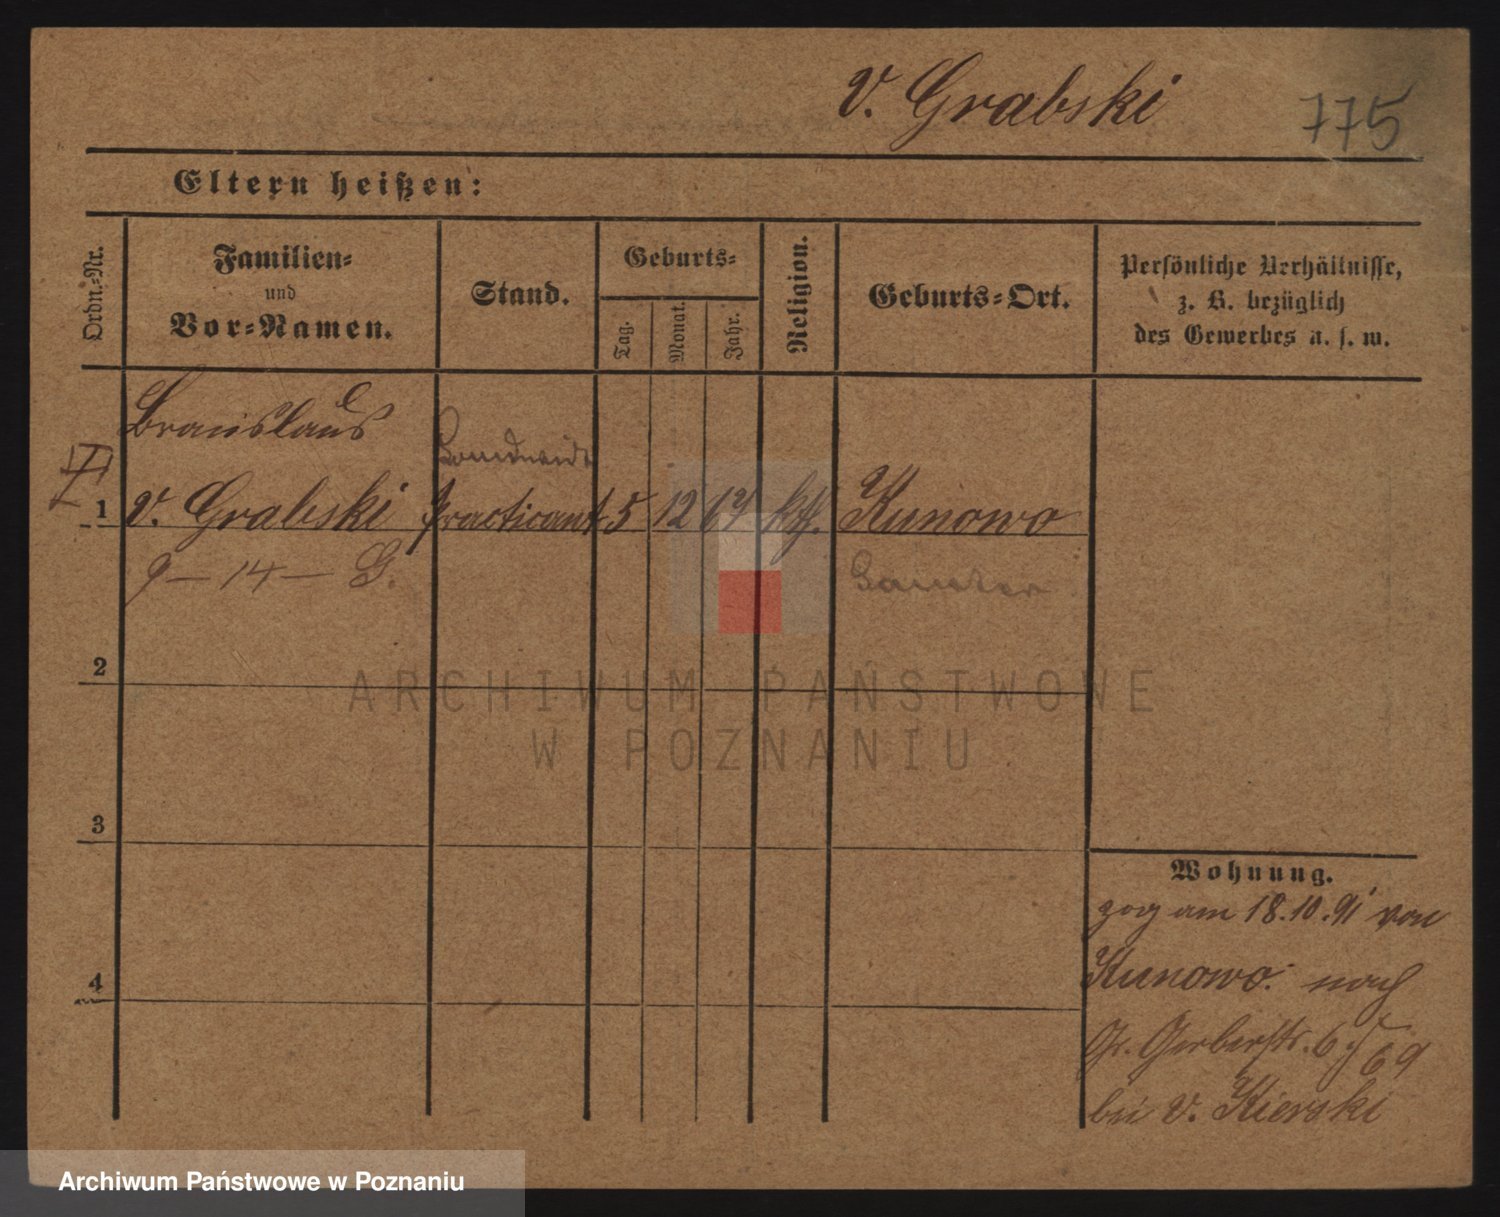 v. Grabski
775
Eltern heißen:
Ordn.-Nr.
Familien-
und
Vor-Namen.
Stand.
Geburts-
Tag.
Monat.
Jahr.
Religion.
Geburts-Ort.
Persönliche Verhältnisse,
z. B. bezüglich
des Gewerbes u. s. w.
Bronislaus
1 v. Grabski Practicant 5 12 67 kth. Kunowo
9-14-G. Samter
2
3
4
Wohnung.
zog am 18.10.91 von
Kunowo nach
Gr. Gerberstr. 6
69
bei v. Kierski
ARCHIWUM PAŃSTWOWE
W POZNANIU
Archiwum Państwowe w Poznaniu